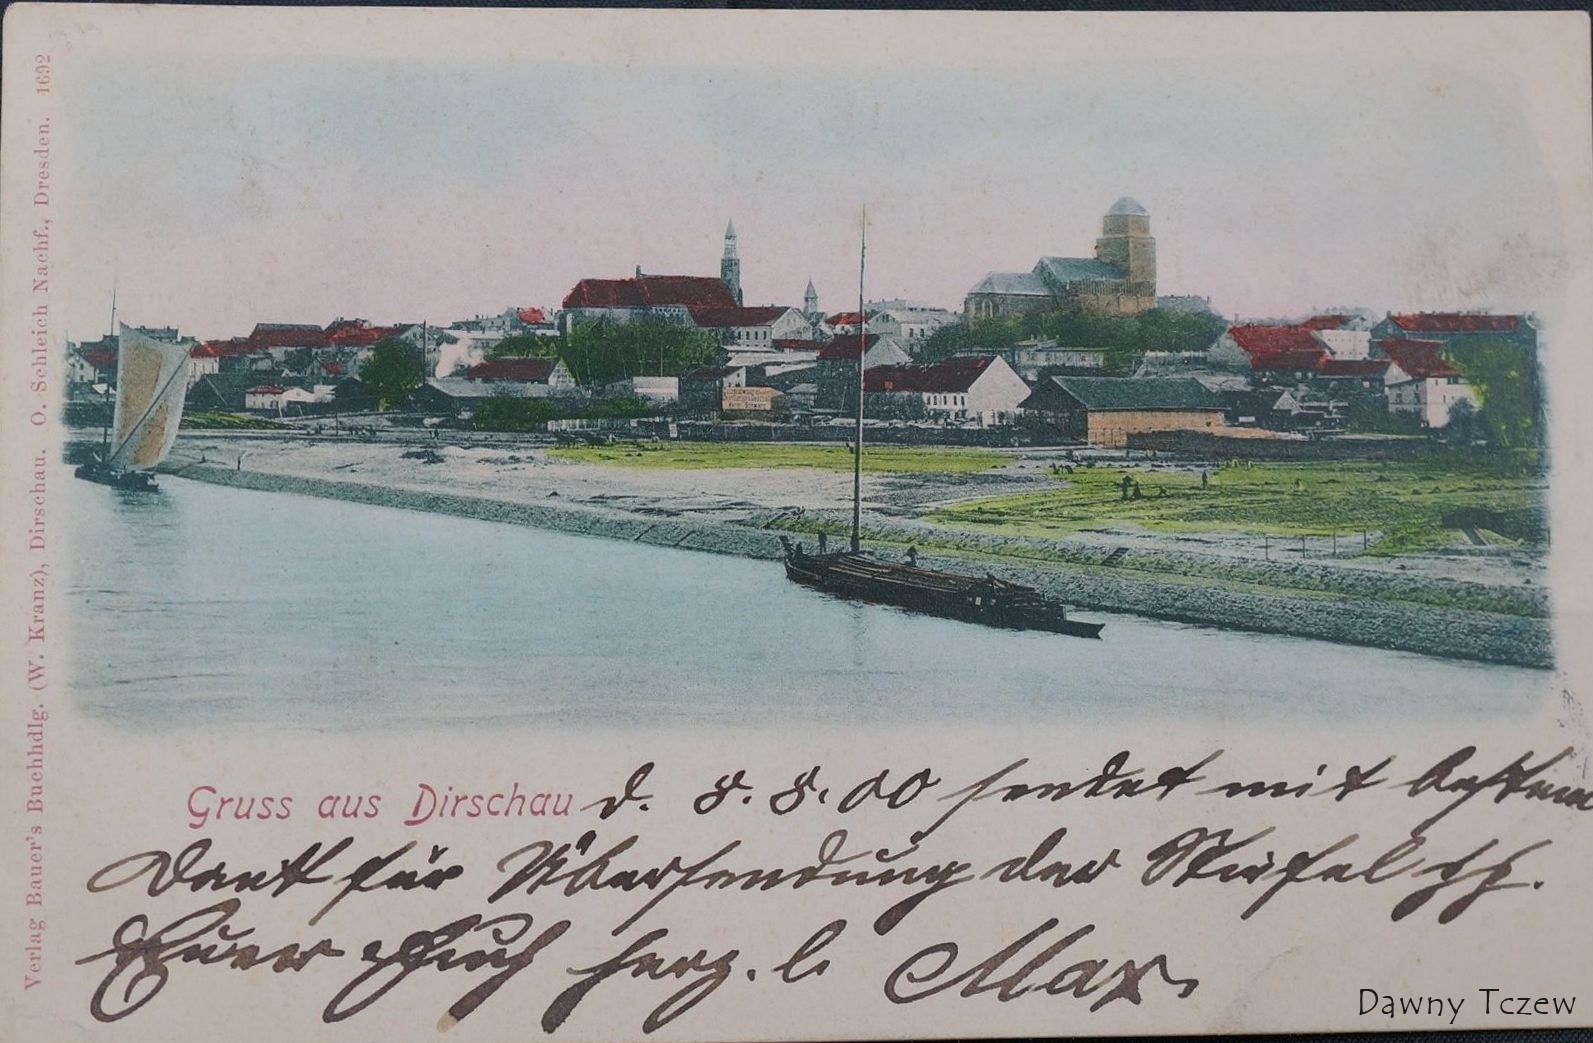 Verlag Bauer's Buchhdlg. (W. Kranz), Dirschau. O. Schleich Nachf., Dresden. 1692
Gruss aus Dirschau d. 8.8.00 sendet mit bestem
Dank für Übersendung der Stiefel
Euer herzl. Max.
Dawny Tczew